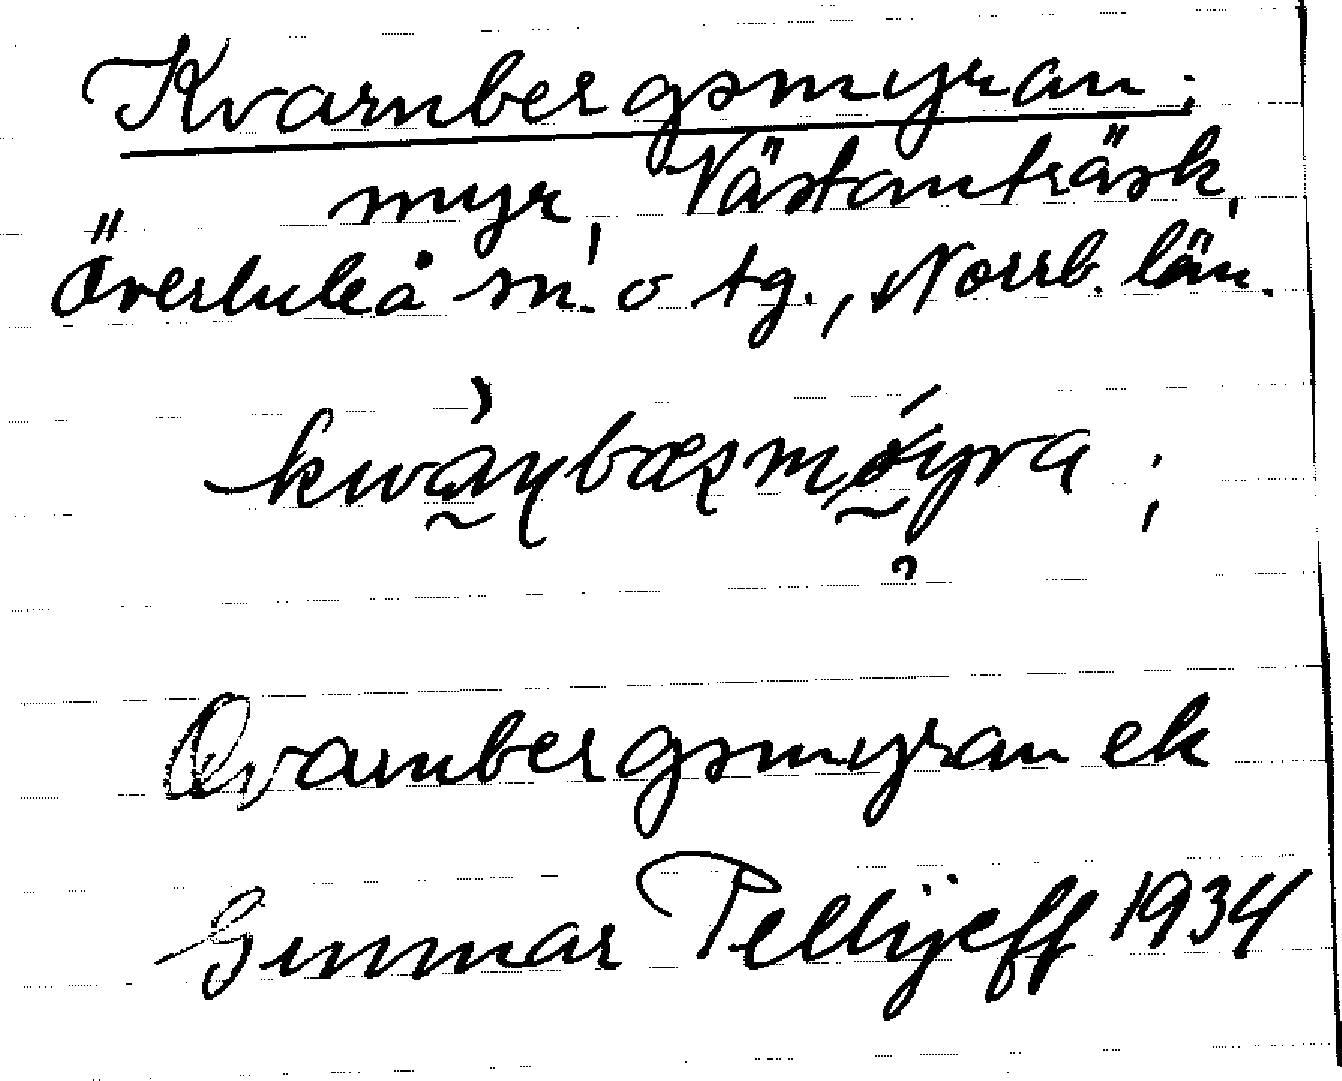 Kvarnbergsmyran;
myr, Västanträsk,
Överluleå sn. o tg., Norrb. län.
Qvarnbergsmyran ek
Gunnar Pellijeff 1934